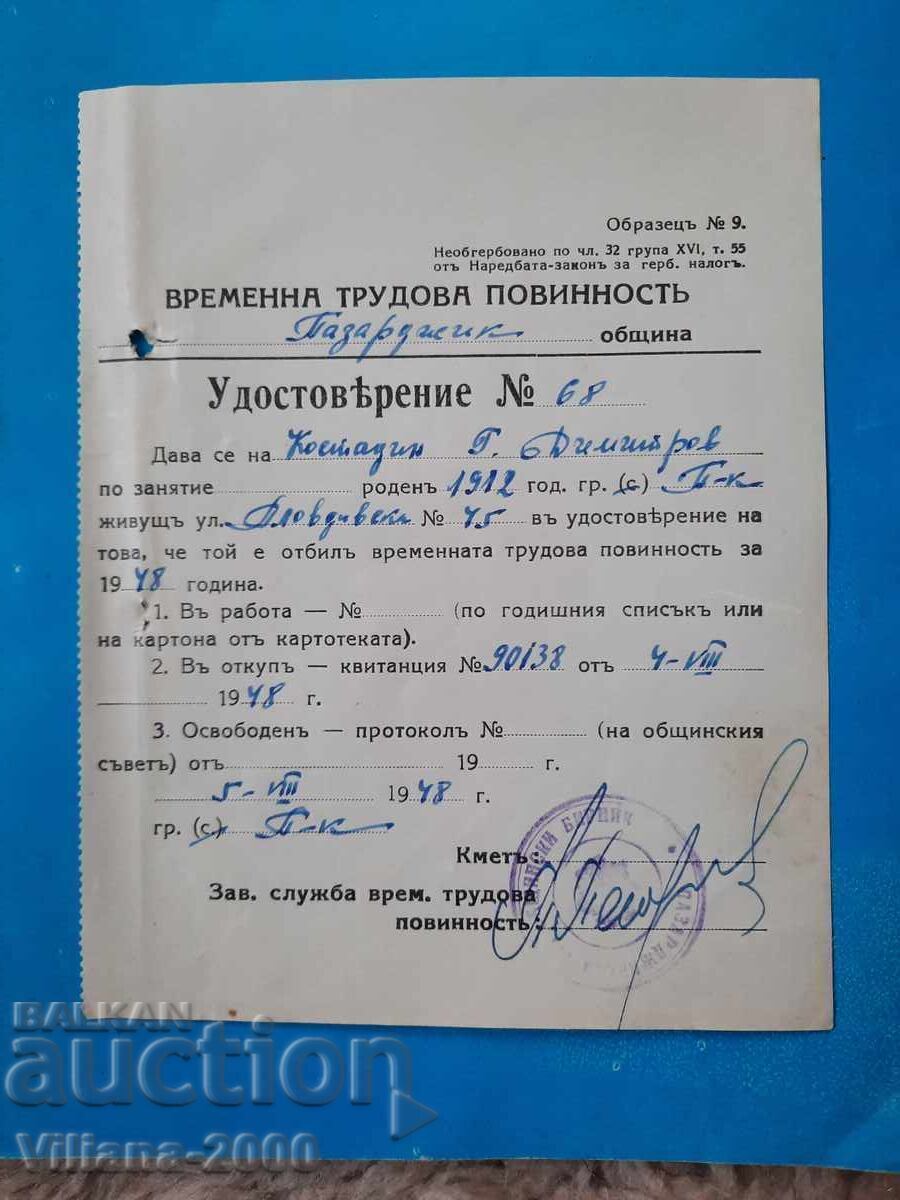 Образецъ № 9.
Необгербовано по чл. 32 група XVI, т. 55
отъ Наредбата-законъ за герб. налогъ.
ВРЕМЕННА ТРУДОВА ПОВИННОСТЬ
Пазарджик община
Удостовѣрение № 68
Дава се на Костадин Г. Димитров
по занятие роденъ 1912 год. гр. (с) П-к
живущъ ул. Пловдивска № 45 въ удостовѣрение на
това, че той е отбилъ временната трудова повинность за
1948 година.
1. Въ работа — № (по годишния списъкъ или
на картона отъ картотеката).
2. Въ откупъ — квитанция № 90138 отъ 4-VIII
1948 г.
3. Освободенъ — протоколъ № (на общинския
съветъ) отъ 19 г.
5-VIII 1948 г.
гр. (с.) П-к
Кметъ:
Зав. служба врем. трудова
повинность:
БИРНИК
ПАЗАРДЖИК
BALKAN
auction
Viliana-2000